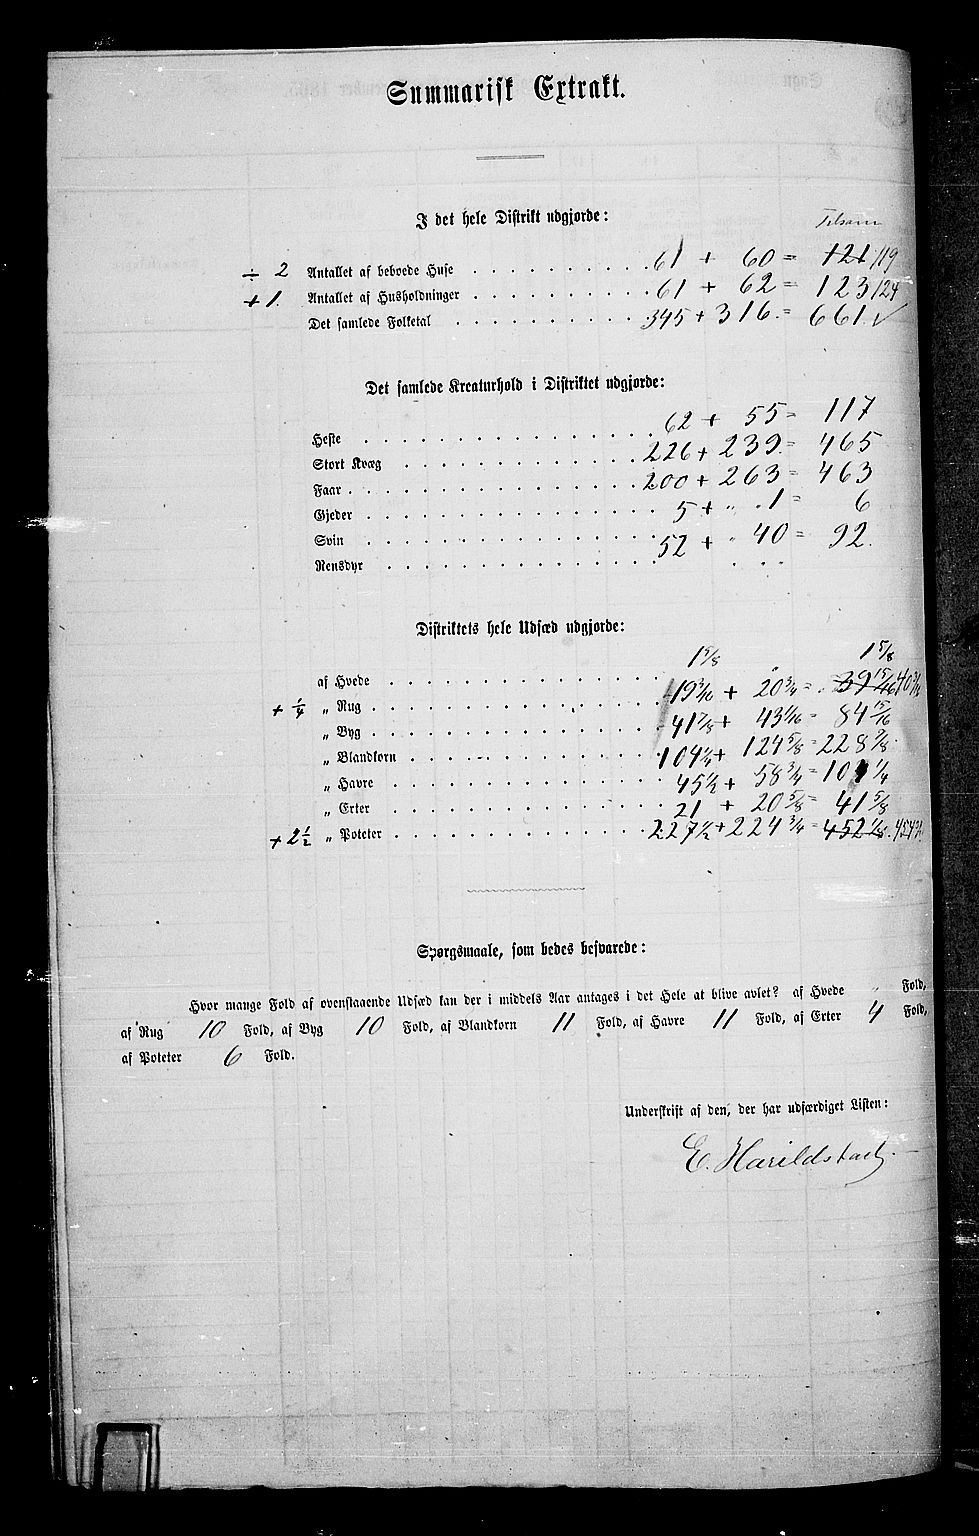 Summarisk Extrakt.
I det hele Distrikt udgjorde:
Tilsam
÷ 2 Antallet af beboede Huse 61 + 60 = 121 119
+ 1. Antallet af Husholdninger 61 + 62 = 123 124
Det samlede Folketal 345 + 316. = 661. ✓
Det samlede Kreaturhold i Distriktet udgjorde:
Heste 62 + 55 = 117
Stort Kvæg 226 + 239. = 465
Faar 200 + 263 = 463
Gjeder 5 + " 1 = 6
Svin 52 + " 40 = 92.
Rensdyr
Distriktets hele Udsæd udgjorde:
af Hvede 1 5/8 1 5/8
+ 1/4 „ Rug 19 3/16 + 20 3/4 = 39 15/16 40 3/16
„ Byg 41 7/8 + 43 1/16 = 84 15/16
„ Blandkorn 104 1/4 + 124 5/8 = 228 7/8
„ Havre 45 1/2 + 58 3/4 = 104 1/4
„ Erter 21 + 20 5/8 = 41 5/8
+ 2 1/2 „ Poteter 227 1/2 + 224 3/4 = 452 1/8. 454 3/4
Spørgsmaale, som bedes besvarede:
Hvor mange Fold af ovenstaaende Udsæd kan der i middels Aar antages i det Hele at blive avlet? af Hvede " Fold,
af Rug 10 Fold, af Byg 10 Fold, af Blandkorn 11 Fold, af Havre 11 Fold, af Erter 4 Fold,
af Poteter 6 Fold.
Underskrift af den, der har udfærdiget Listen:
E. Harildstad.